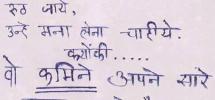 रुठ जाये,
उन्हे मना लेना चाहीये.
क्योंकी.....
वो कमिने अपने सारे